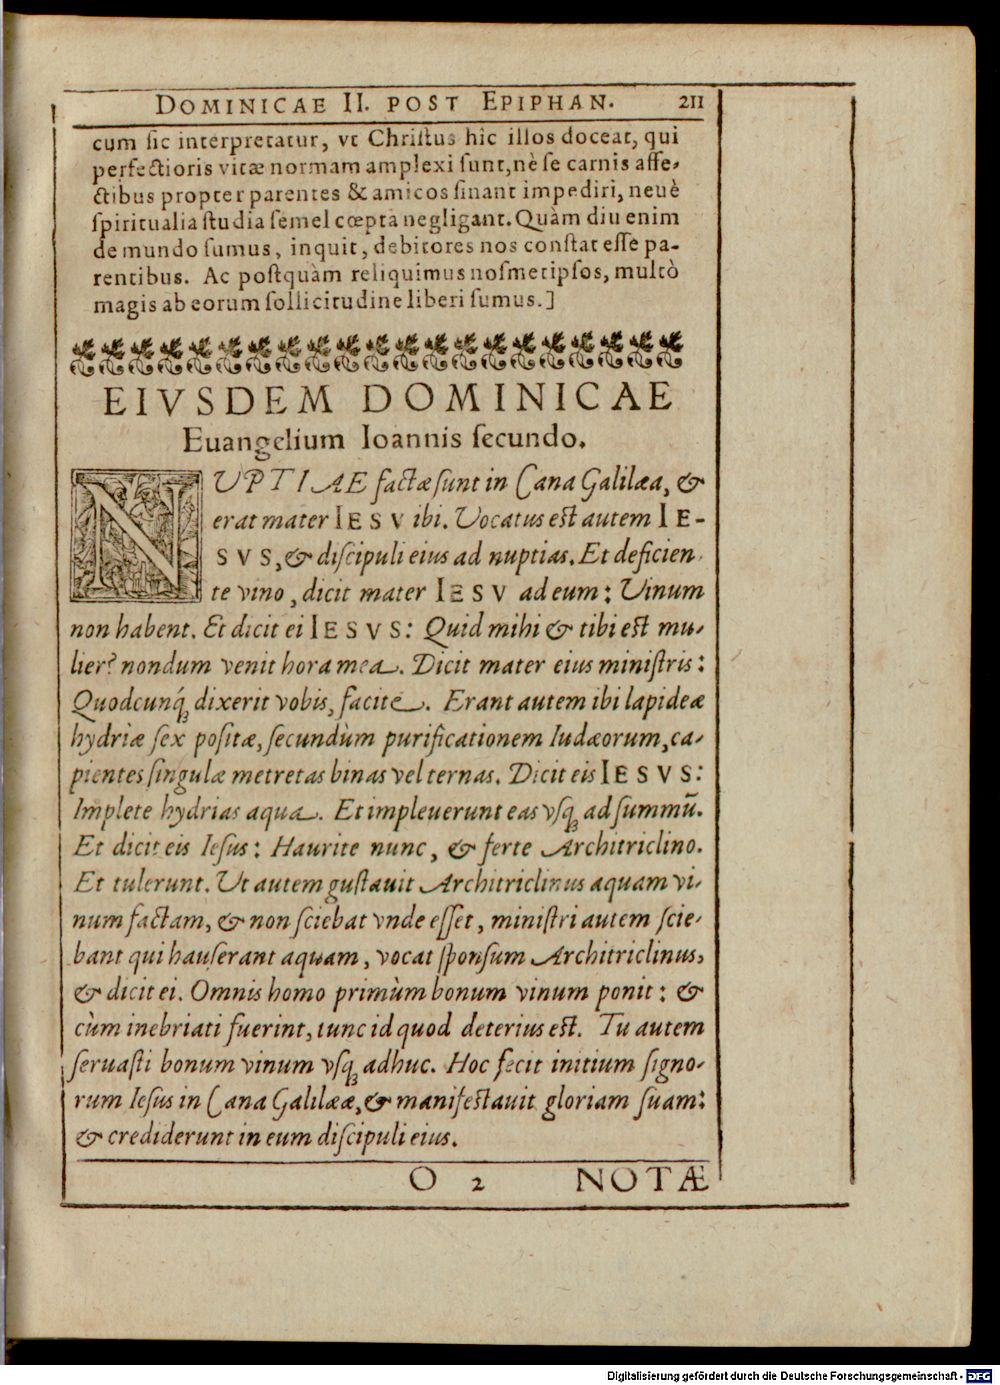 DOMINICAE II. POST EPIPHAN. 211
cum sic interpretatur, vt Christus hic illos doceat, qui
perfectioris vitæ normam amplexi sunt, nè se carnis affe-
ctibus propter parentes & amicos sinant impediri, neuè
spiritualia studia semel cœpta negligant. Quàm diu enim
de mundo sumus, inquit, debitores nos constat esse pa-
rentibus. Ac postquàm reliquimus nosmetipsos, multò
magis ab eorum sollicitudine liberi sumus.]
EIVSDEM DOMINICAE
Euangelium Ioannis secundo.
NUPTIAE factæ sunt in Cana Galilæa, &
erat mater IESV ibi. Vocatus est autem IE-
SVS, & discipuli eius ad nuptias. Et deficien-
te vino, dicit mater IESV ad eum: Vinum
non habent. Et dicit ei IESVS: Quid mihi & tibi est mu-
lier? nondum venit hora mea. Dicit mater eius ministris:
Quodcunq́; dixerit vobis, facite. Erant autem ibi lapideæ
hydriæ sex positæ, secundùm purificationem Iudæorum, ca-
pientes singulæ metretas binas vel ternas. Dicit eis IESVS:
Implete hydrias aqua. Et impleuerunt eas vsq; ad summū.
Et dicit eis Iesus: Haurite nunc, & ferte Architriclino.
Et tulerunt. Vt autem gustauit Architriclinus aquam vi-
num factam, & non sciebat vnde esset, ministri autem scie-
bant qui hauserant aquam, vocat sponsum Architriclinus,
& dicit ei. Omnis homo primùm bonum vinum ponit: &
cùm inebriati fuerint, tunc id quod deterius est. Tu autem
seruasti bonum vinum vsq; adhuc. Hoc fecit initium signo-
rum Iesus in Cana Galilææ, & manifestauit gloriam suam:
& crediderunt in eum discipuli eius.
O 2 NOTÆ
Digitalisierung gefördert durch die Deutsche Forschungsgemeinschaft - DFG